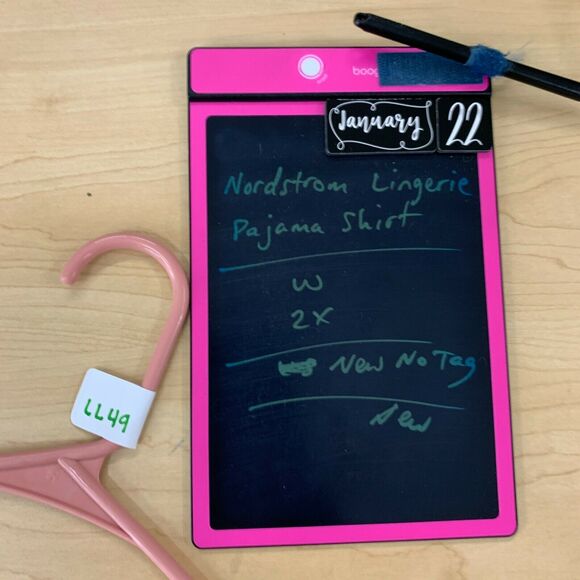 boog
January 22
Nordstrom Lingerie
Pajama Shirt
W
2X
New No Tag
New
LL49